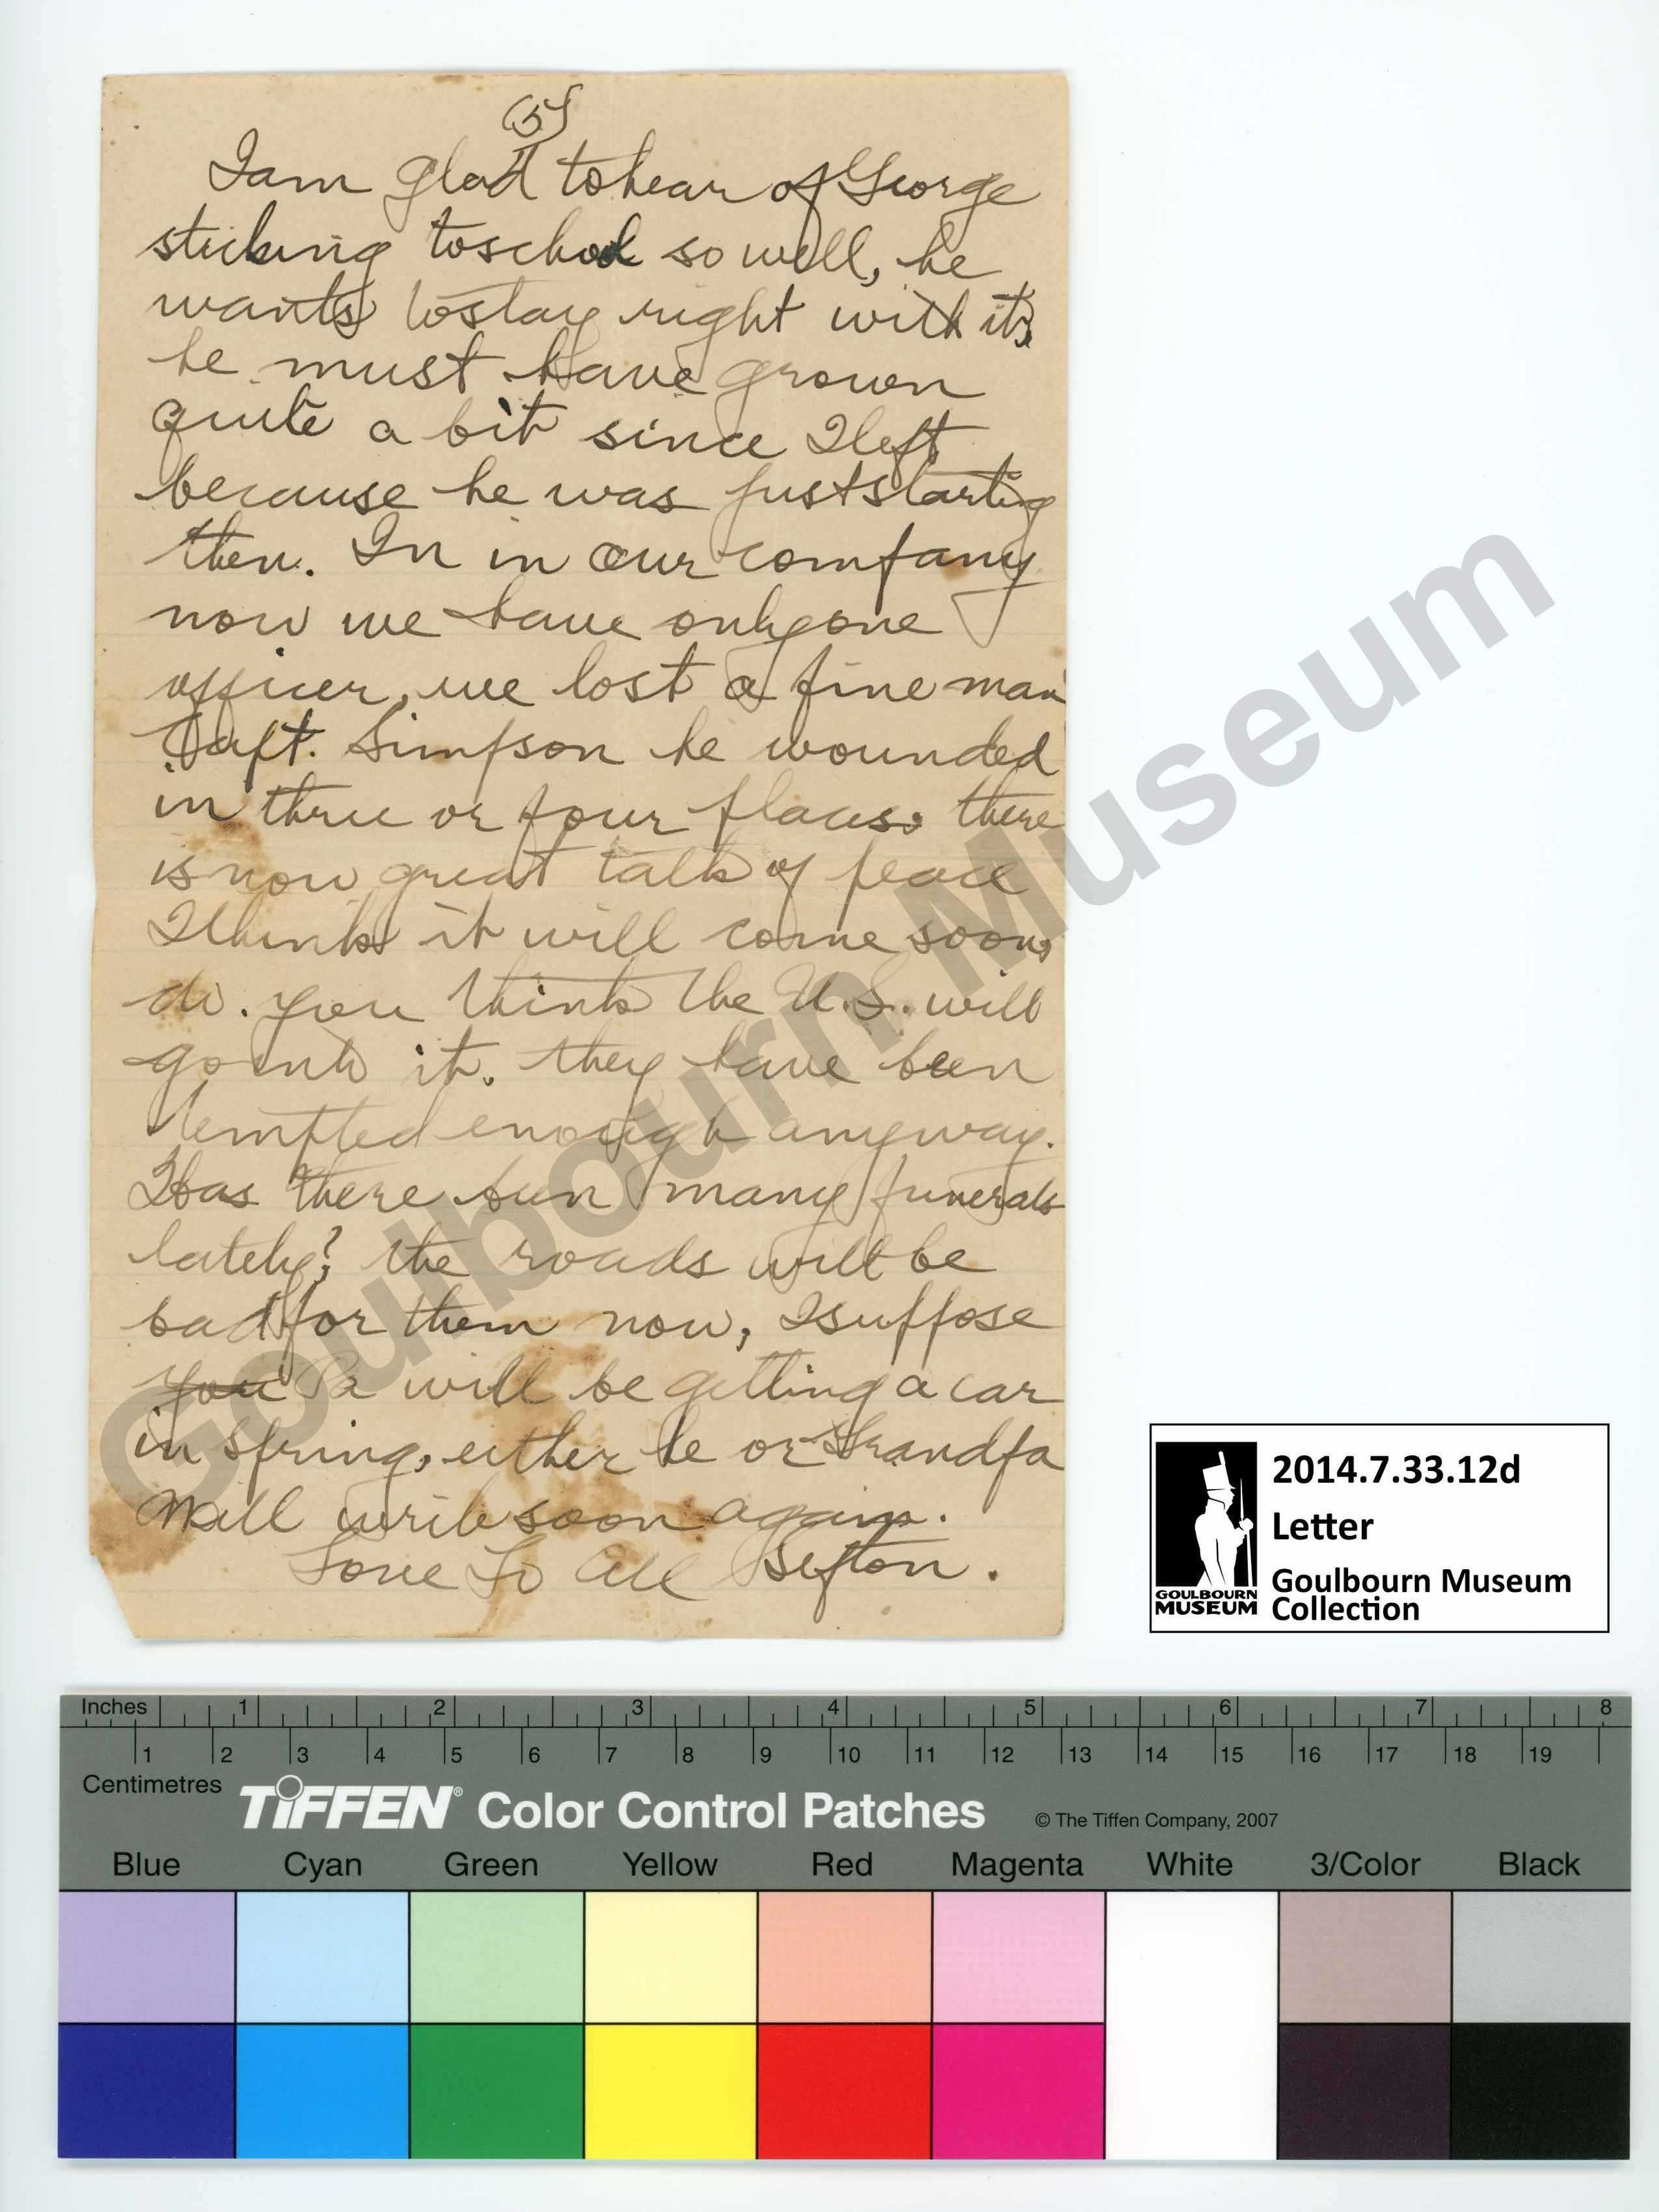 (5)
I am glad to hear of George
sticking to school so well, he
wants to stay right with it,
he must have grown
quite a bit since I left,
because he was just starting
then. In in our company
now we have only one
officer, we lost a fine man
Capt. Simpson he wounded
in three or four places. there
is now great talk of peace
I think it will come soon,
do. you think the U.S. will
go into it. they have been
tempted enough anyway.
Has there been many funerals
lately? the roads will be
bad for them now, I suppose
you Pa will be getting a car
in spring, either he or Grandpa
Will write soon again.
Love To All Sefton.
Goulbourn Museum
2014.7.33.12d
Letter
Goulbourn Museum
Collection
GOULBOURN
MUSEUM
Inches 1 2 3 4 5 6 7 8
1 2 3 4 5 6 7 8 9 10 11 12 13 14 15 16 17 18 19
Centimetres
TIFFEN® Color Control Patches © The Tiffen Company, 2007
Blue Cyan Green Yellow Red Magenta White 3/Color Black